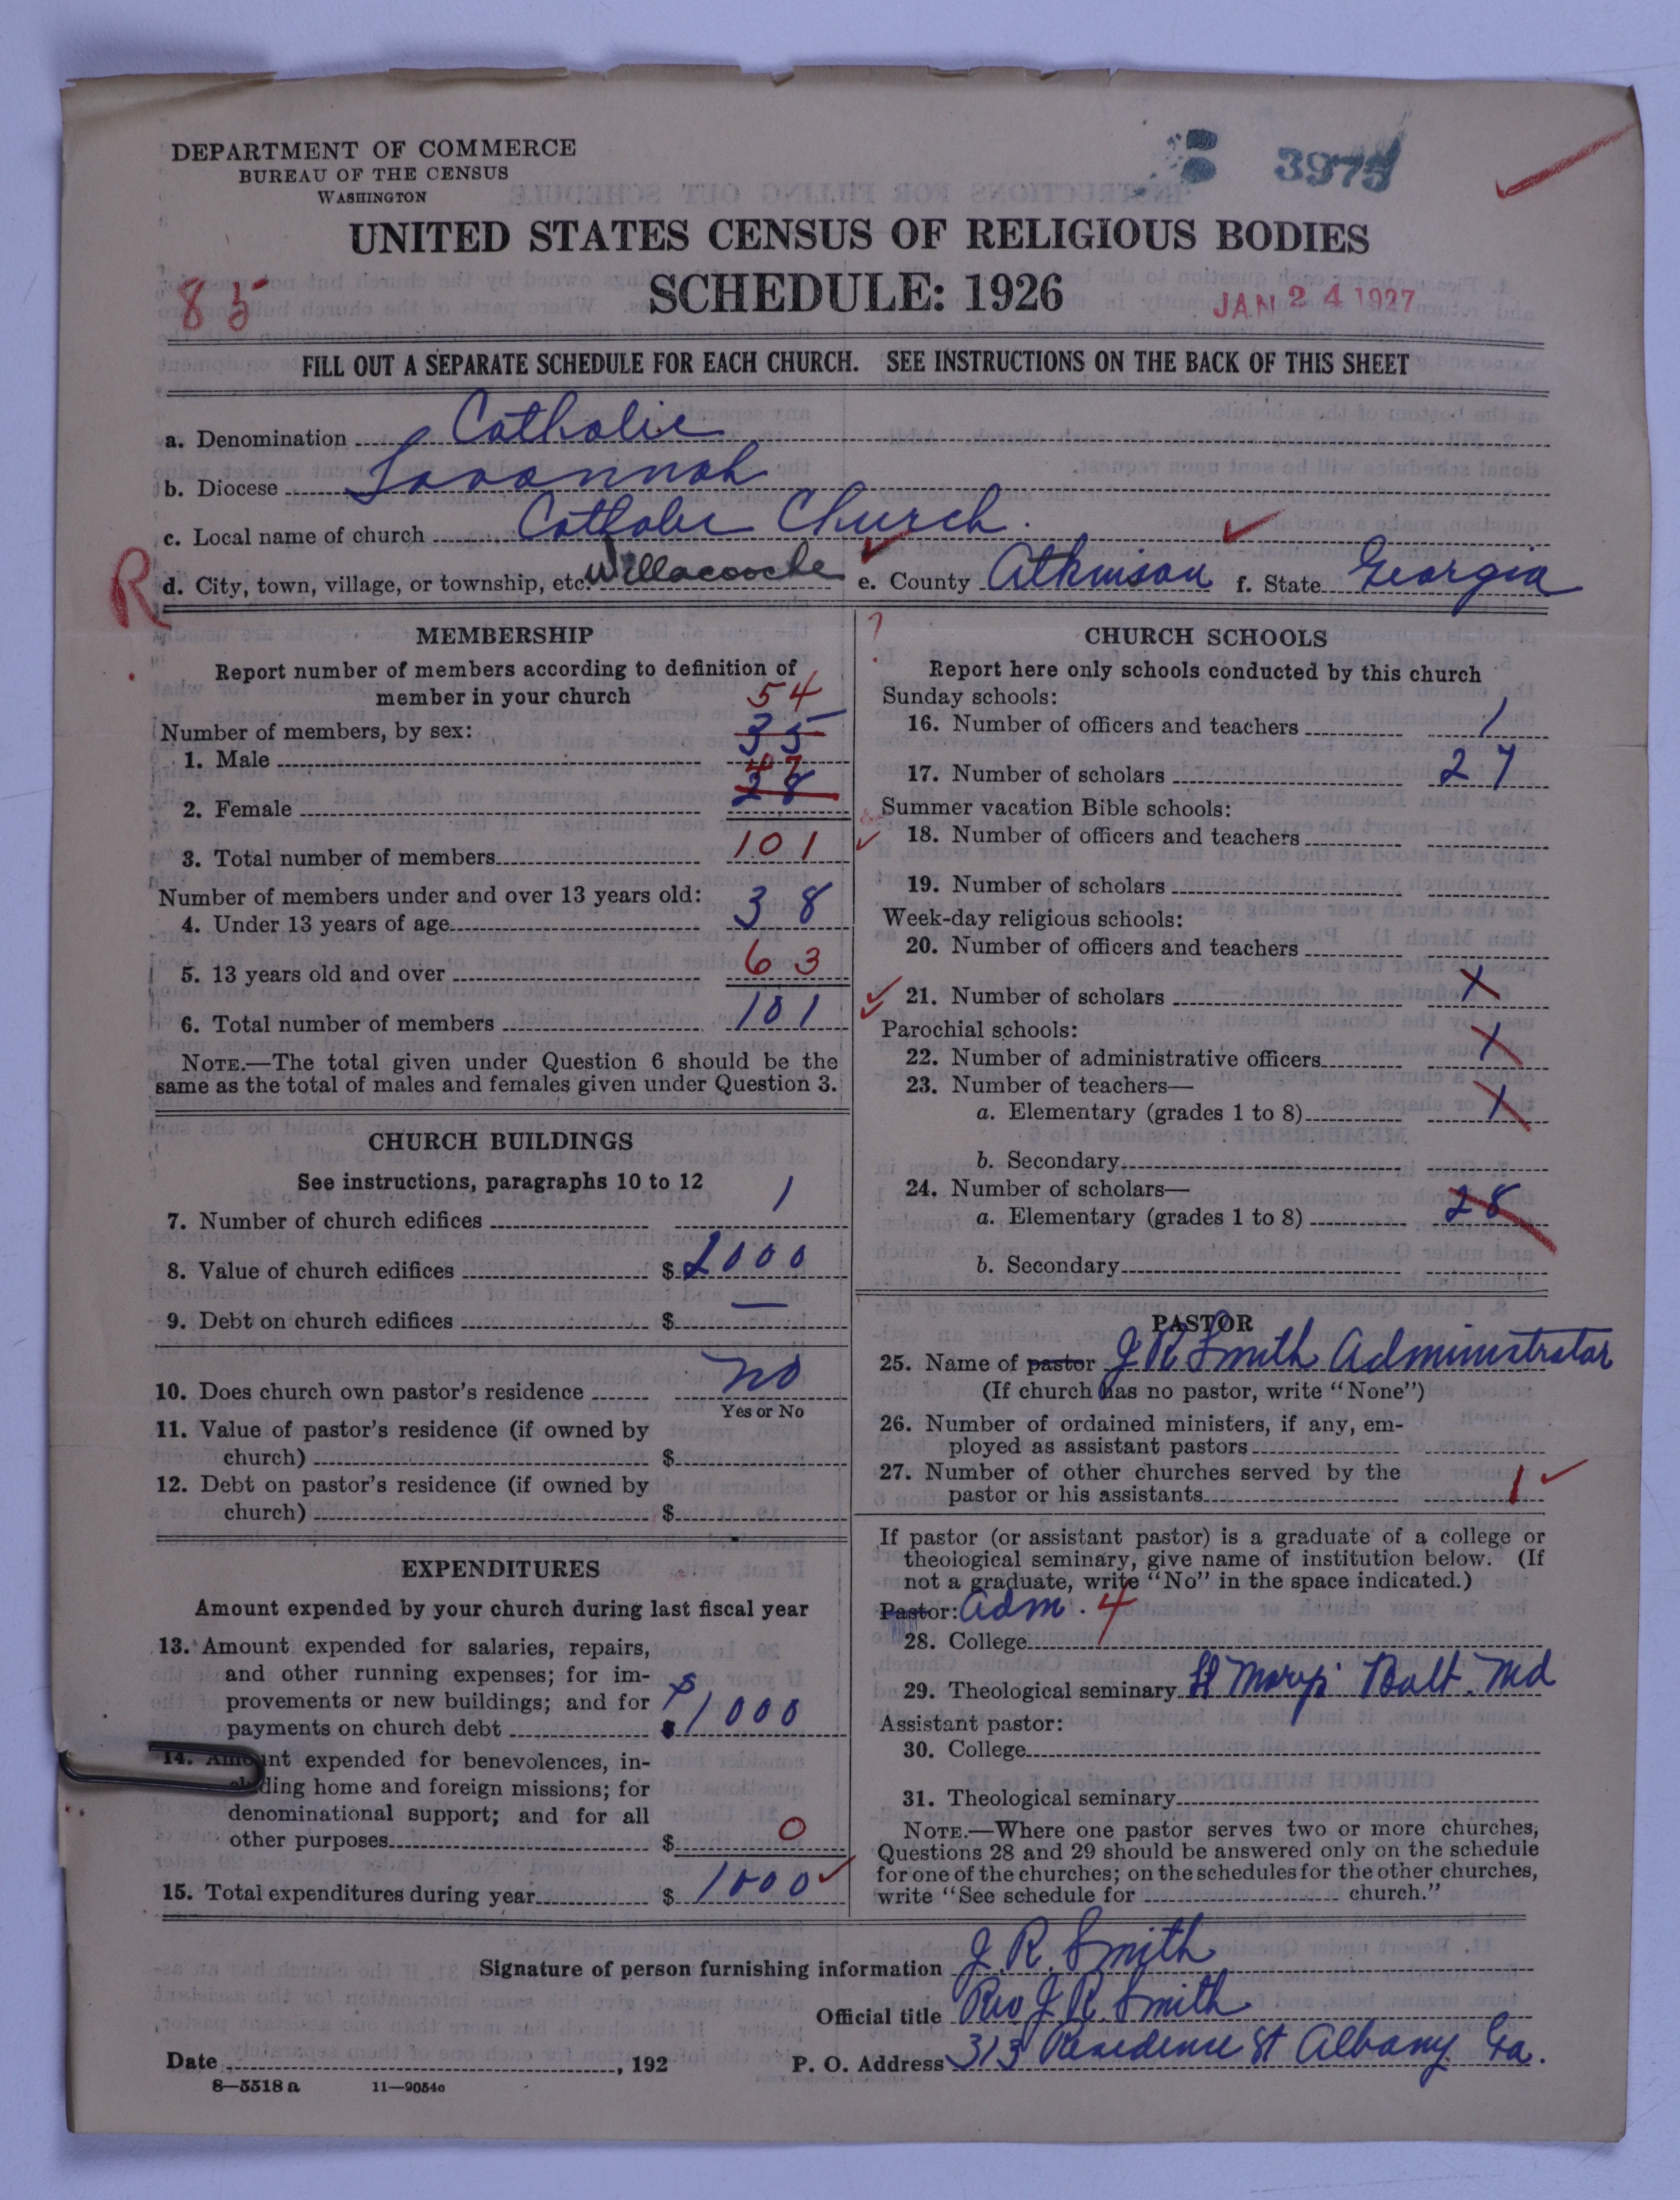 DEPARTMENT OF COMMERCE
BUREAU OF THE CENSUS
WASHINGTON
3975
UNITED STATES CENSUS OF RELIGIOUS BODIES
SCHEDULE: 1926
85
JAN 24 1927
FILL OUT A SEPARATE SCHEDULE FOR EACH CHURCH. SEE INSTRUCTIONS ON THE BACK OF THIS SHEET
a. Denomination Catholic
b. Diocese Savannah
c. Local name of church Catholic Church.
R
d. City, town, village, or township, etc. Willacoochee e. County Atkinson f. State Georgia
MEMBERSHIP
Report number of members according to definition of
member in your church
54
Number of members, by sex:
1. Male 35
47
2. Female 28
3. Total number of members 101
Number of members under and over 13 years old:
4. Under 13 years of age 38
5. 13 years old and over 63
6. Total number of members 101
NOTE.—The total given under Question 6 should be the
same as the total of males and females given under Question 3.
CHURCH BUILDINGS
See instructions, paragraphs 10 to 12
7. Number of church edifices 1
8. Value of church edifices $ 2000
9. Debt on church edifices $ —
10. Does church own pastor's residence no
Yes or No
11. Value of pastor's residence (if owned by
church) $
12. Debt on pastor's residence (if owned by
church) $
EXPENDITURES
Amount expended by your church during last fiscal year
13. Amount expended for salaries, repairs,
and other running expenses; for im-
provements or new buildings; and for
payments on church debt $1000
14. Amount expended for benevolences, in-
cluding home and foreign missions; for
denominational support; and for all
other purposes $ 0
15. Total expenditures during year $ 1000
?
CHURCH SCHOOLS
Report here only schools conducted by this church
Sunday schools:
16. Number of officers and teachers 1
17. Number of scholars 27
Summer vacation Bible schools:
18. Number of officers and teachers
19. Number of scholars
Week-day religious schools:
20. Number of officers and teachers
21. Number of scholars 1
Parochial schools:
22. Number of administrative officers 1
23. Number of teachers—
a. Elementary (grades 1 to 8) 1
b. Secondary
24. Number of scholars—
a. Elementary (grades 1 to 8) 28
b. Secondary
PASTOR
25. Name of pastor J R Smith Administrator
(If church has no pastor, write "None")
26. Number of ordained ministers, if any, em-
ployed as assistant pastors
27. Number of other churches served by the
pastor or his assistants 1
If pastor (or assistant pastor) is a graduate of a college or
theological seminary, give name of institution below. (If
not a graduate, write "No" in the space indicated.)
Pastor: Adm. 4
28. College
29. Theological seminary St Marys Balt. Md
Assistant pastor:
30. College
31. Theological seminary
NOTE.—Where one pastor serves two or more churches,
Questions 28 and 29 should be answered only on the schedule
for one of the churches; on the schedules for the other churches,
write "See schedule for church."
Signature of person furnishing information J. R. Smith
Official title Rev J. R. Smith
Date , 192 P. O. Address 313 Residence St Albany Ga.
8—5518 a 11—9054c